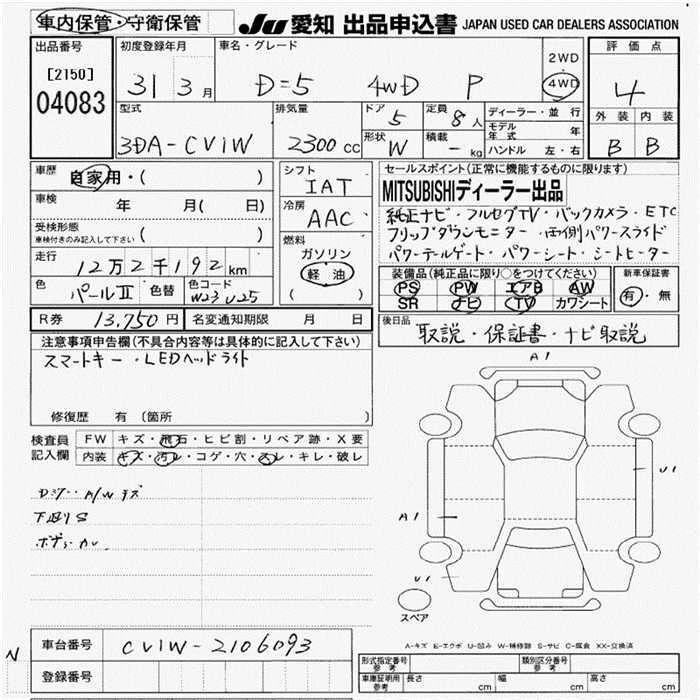 車内保管・守衛保管
JU 愛知 出品申込書 JAPAN USED CAR DEALERS ASSOCIATION
出品番号
[2150]
04083
初度登録年月
31 3月
車名・グレード
D=5 4WD P
2WD
4WD
評価点
4
外装 内装
B B
型式
3DA-CV1W
排気量
2300 cc
ドア
5
定員
8人
形状
W
積載
- kg
ディーラー・並行
モデル年式 年
ハンドル 左・右
車歴
自家用・( )
車検
年 月( 日)
受検形態
車検付きのみ記入して下さい
( )
走行
12万2千192 km
色
パールⅡ
色替
色コード
W23 U25
シフト
IAT
冷房
AAC
燃料
ガソリン
軽油
( )
セールスポイント(正常に機能するものに限ります)
MITSUBISHIディーラー出品
純正ナビ・フルセグTV・バックカメラ・ETC
フリップダウンモニター・両側パワースライド
パワーテールゲート・パワーシート・シートヒーター
装備品(純正品に限り○をつけてください)
PS PW エアB AW
SR ナビ TV カワシート
新車保証書
有・無
R券 13,750円
名変通知期限 月 日
後日品
取説・保証書・ナビ取説
注意事項申告欄(不具合内容等は具体的に記入して下さい)
スマートキー・LEDヘッドライト
修復歴 有 (箇所
検査員記入欄
FW キズ・飛石・ヒビ割・リペア跡・X要
内装 キズ・汚レ・コゲ・穴・スレ・キレ・破レ
A/W キズ
下廻りS
A1
U1
A1
U1
スペア
A-キズ E-エクボ U-凹み W-補修跡 S-サビ C-腐食 XX-交換済
N
車台番号
CV1W-2106093
登録番号
型式指定番号 参考
類別区分番号 参考
車庫証明用 参考
長さ cm
幅 cm
高さ cm